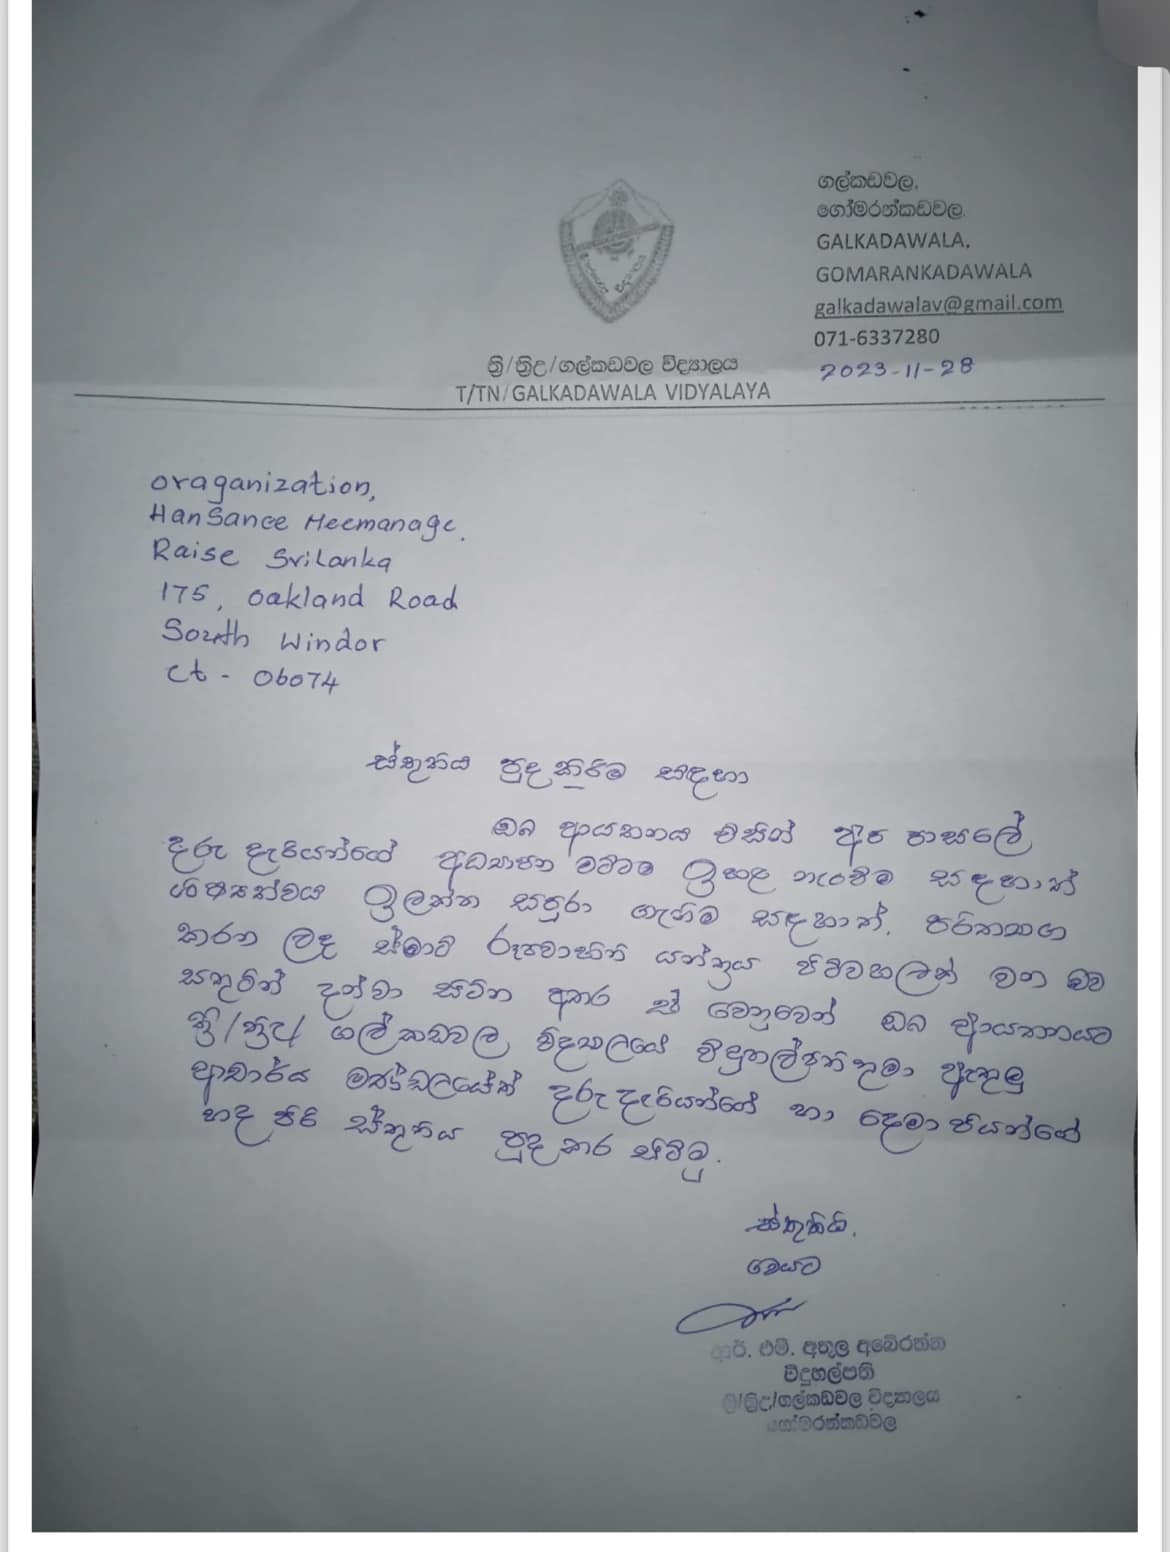 ගල්කඩවල,
ගෝමරන්කඩවල.
GALKADAWALA,
GOMARANKADAWALA
galkadawalav@gmail.com
071-6337280
2023-11-28
ත්‍රි/ත්‍රිඋ/ගල්කඩවල විද්‍යාලය
T/TN/GALKADAWALA VIDYALAYA
oraganization,
Hansance Heemanage.
Raise SriLanka
175, oakland Road
South Windor
ct - 06074
ස්තූතිය පුද කිරීම සඳහා
ඔබ ආයතනය විසින් අප පාසලේ
දරු දැරියන්ගේ අධ්‍යාපන මට්ටම ඉහළ නැංවීම සඳහාත්
ඉලක්ක සපුරා ගැනීම සඳහාත්, පරිත්‍යාග
කරන ලද ස්මාට් රූපවාහිනී යන්ත්‍රය පිටිවහලක් වන බව
සතුටින් දන්වා සිටින අතර ඒ වෙනුවෙන් ඔබ ආයතනයට
ත්‍රි/ත්‍රිඋ/ ගල්කඩවල විද්‍යාලයේ විදුහල්පතිතුමා ඇතුළු
ආචාර්ය මණ්ඩලයේත් දරු දැරියන්ගේ හා දෙමාපියන්ගේ
හද පිරි ස්තූතිය පුද කර සිටිමු.
ස්තූතියි.
මෙයට
ආර්. එම්. අතුල අබේරත්න
විදුහල්පති
ත්‍රි/ත්‍රිඋ/ගල්කඩවල විද්‍යාලය
ගෝමරන්කඩවල